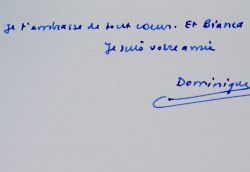 Je t'embrasse de tout cœur. Et Bianca
Je suis votre amie
Dominique